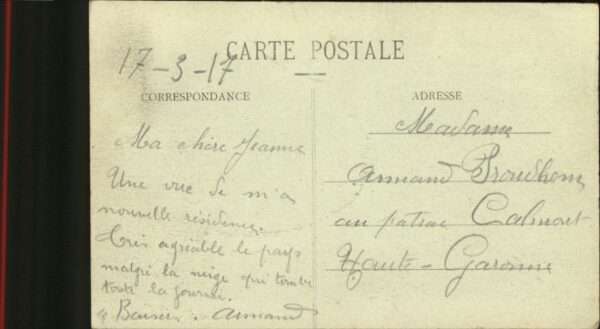 17-3-17
CARTE POSTALE
CORRESPONDANCE
Ma chère Jeanne
Une vue de m'a
nouvelle résidence.
très agréable le pays
malgré la neige qui tombe
toute la journée.
Baisers. Armand
ADRESSE
Madame
Armand Proudhom
au patrac Calmont
Haute-Garonne